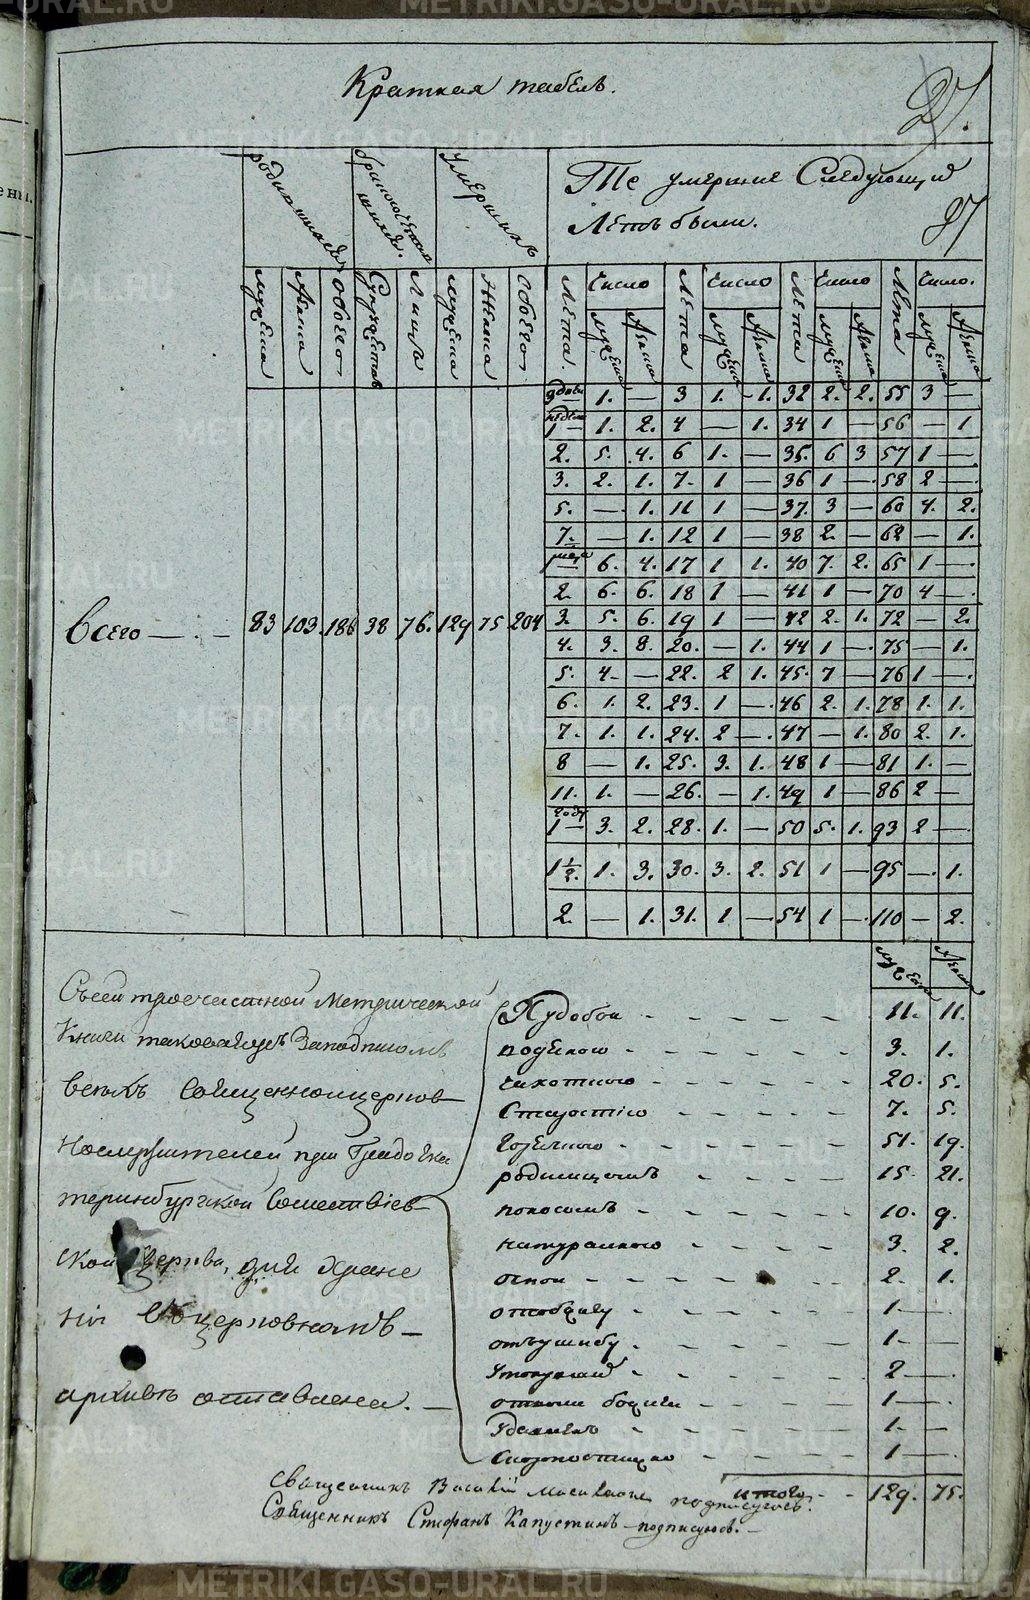 Краткая табель.
27.
родившихся
бракосочетавшихся.
умерших
Те умершие Следующий
Летъ были.
87
мужеска
женска
обоего
Супружествъ
Лицъ
мужеска
женска
обоего
Лета. Число Лета Число Лета Число Лета Число.
мужеска женска мужеска женска мужеска женска мужеска женска
3 дней 1. — 3 1. 1. 32 2. 2. 55 3 —
недели 1 — 1. 2. 4 — 1. 34 1 — 56 — 1
2. 5. 4. 6 1. — 35. 6 3 57 1 —
3. 2. 1. 7. 1 — 36 1 — 58 2 —
5. — 1. 11 1 — 37. 3 — 60 4. 2.
7. — 1. 12 1 — 38 2. — 62 — 1.
6. 4. 17 1 1. 40 7. 2. 65 1 —
2. 6. 6. 18 1 — 41 1 — 70 4 —
Всего — . — 83 103. 186 38 76. 129 75 204
3. 5. 6. 19 1 — 42 2. 1. 72 — 2.
4. 3. 8. 20. — 1. 44 1 — 75 — 1.
5. 4. — 22. 2 1. 45. 7 — 76 1 —
6. 1. 2. 23. 1 — 46 2. 1. 78 1. 1.
7. 1. 1. 24. 2 — 47 — 1. 80 2. 1.
8 — 1. 25. 3. 1. 48 1 — 81 1. —
11. 1. — 26. — 1. 49 1 — 86 2 —
году 1 — 3. 2. 28. 1. — 50 5. 1. 93 2 —
1½. 1. 3. 30. 3. 2. 51 1 — 95 — 1.
2. — 1. 31. 1 — 54 1 — 110 — 2.
мужеска женска
Съсей троечастной Метрической
Книги таковая за подписомъ
всехъ Священноцерков—
нослужителей при Градо Ека
теринбургской Сошествіев—
ской церкви, для хране
ніи въ церковномъ —
архивъ оставлена. —
Худобои 11. 11.
3. 1.
чихотного 20. 5.
Старостію 7. 5.
Горячкою 51. 19.
родимцомъ 15. 21.
поносомъ 10. 9.
натуральною 3. 2.
оспой 2. 1.
1 —
отъушибу 1 —
2 —
1 —
1 —
Скоропостижно 1 —
итого 129. 75.
Священникъ Василій подписуюсь.
Священникъ Стефанъ Капустинъ подписуюсь. —
METRIKI.GASO-URAL.RU